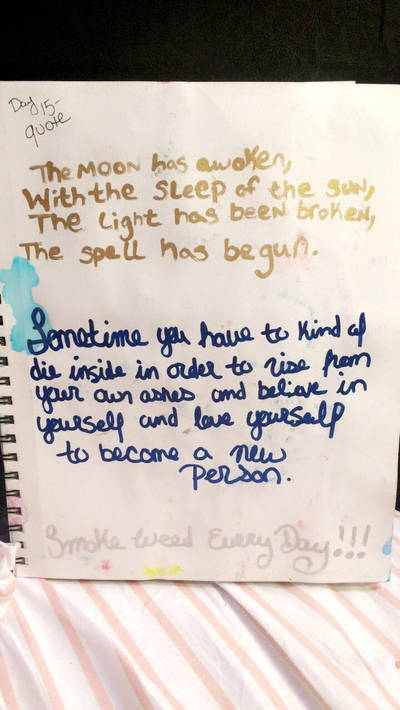 Day 15-
quote
The MOON has awoken,
With the SLEEP of the SUN,
The Light has been broken,
The spell has begun.
Sometime you have to kind of
die inside in order to rise from
your own ashes and believe in
yourself and love yourself
to become a new
person.
Smoke Weed Every Day!!!